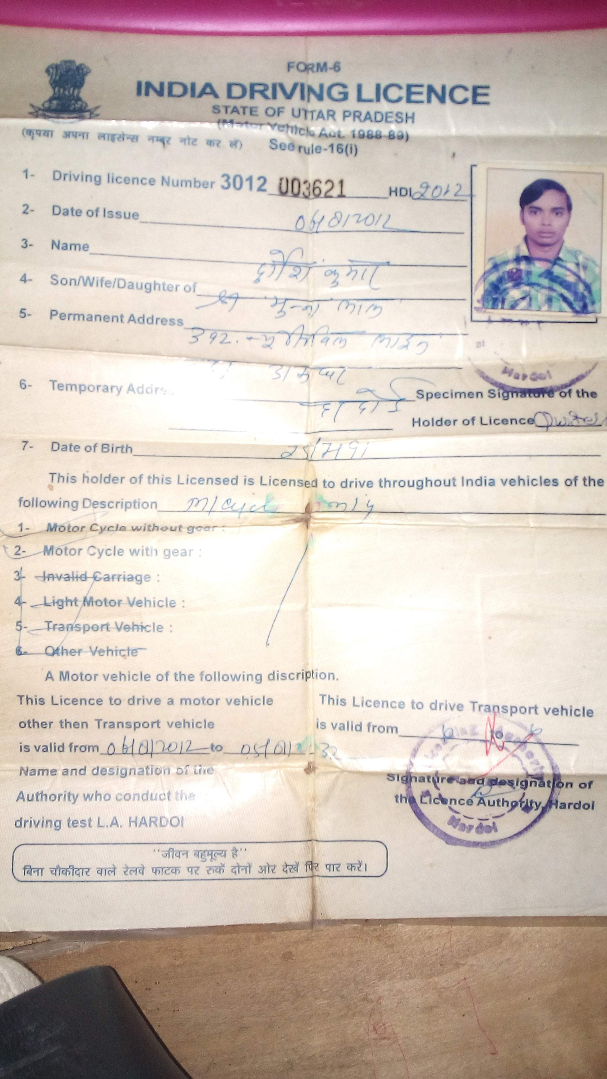 FORM-6
INDIA DRIVING LICENCE
STATE OF UTTAR PRADESH
(Motor Vehicle Act. 1988-89)
(कृपया अपना लाइसेन्स नम्बर नोट कर लें) See rule-16(i)
1- Driving licence Number 3012 003621 HDI 2012
2- Date of Issue 06/01/2012
3- Name कुमार
4- Son/Wife/Daughter of श्री मुन्ना लाल
5- Permanent Address
392. सिविल लाइन
6- Temporary Addre हरदोई Specimen Signature of the
Holder of Licence
7- Date of Birth
This holder of this Licensed is Licensed to drive throughout India vehicles of the
following Description M/Cycle only
1- Motor Cycle without gear :
2- Motor Cycle with gear :
3- Invalid Carriage :
4- Light Motor Vehicle :
5- Transport Vehicle :
6- Other Vehicle
A Motor vehicle of the following discription.
This Licence to drive a motor vehicle
other then Transport vehicle
is valid from 06/01/2012 to 05/01/2032
Name and designation of the
Authority who conduct the
driving test L.A. HARDOI
This Licence to drive Transport vehicle
is valid from to
Signature and designation of
the Licence Authority, Hardoi
Hardoi
Hardoi
"जीवन बहुमूल्य है"
बिना चौकीदार वाले रेलवे फाटक पर रुकें दोनों ओर देखें फिर पार करें।